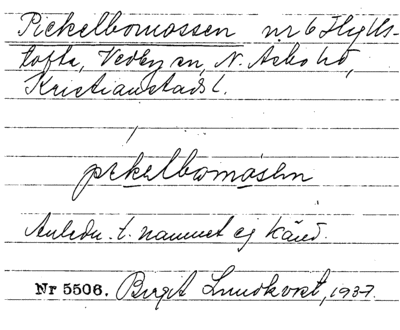 Pickelbomossen nr 6 Hyllstofta, Vedby sn, N. Åsbo hd,
Kristianstads l.
pikəlbωmåsən
Anledn. t. namnet ej känd.
Nr 5506. Birgit Lundkvist, 1937.